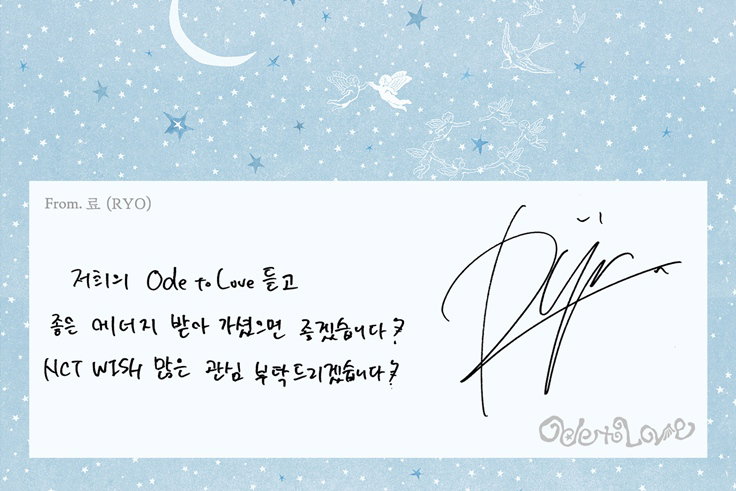 From. 료 (RYO)
저희의 Ode to Love 듣고
좋은 에너지 받아 가셨으면 좋겠습니다?
NCT WISH 많은 관심 부탁드리겠습니다?
Ode to Love